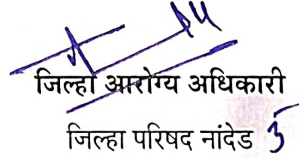 जिल्हा आरोग्य अधिकारी
जिल्हा परिषद नांदेड